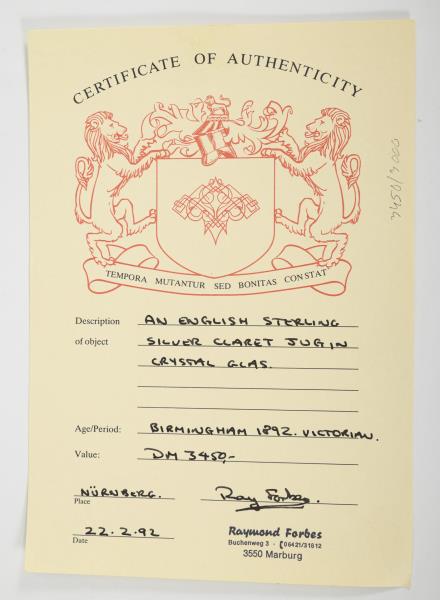 CERTIFICATE OF AUTHENTICITY
TEMPORA MUTANTUR SED BONITAS CONSTAT
Description AN ENGLISH STERLING
of object SILVER CLARET JUG, IN
CRYSTAL GLAS.
Age/Period: BIRMINGHAM 1892. VICTORIAN.
Value: DM 3450,-
NÜRNBERG. Ray Forbes.
Place
22.2.92
Date
Raymond Forbes
Buchenweg 3 - 06421/31612
3550 Marburg
3450/3000